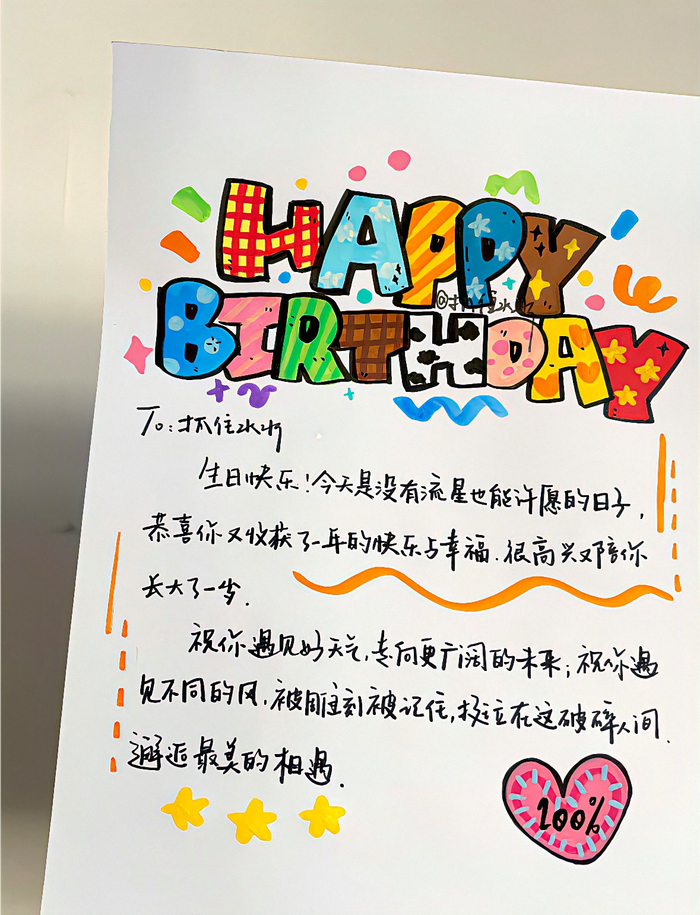 HAPPY
BIRTHDAY
To:抓住水
生日快乐!今天是没有流星也能许愿的日子,
恭喜你又收获了一年的快乐与幸福.很高兴又陪你
长大了一岁.
祝你遇见好天气,走向更广阔的未来;祝你遇
见不同的风,被雕刻被记住,挺立在这破碎人间.
邂逅最美的相遇.
100%